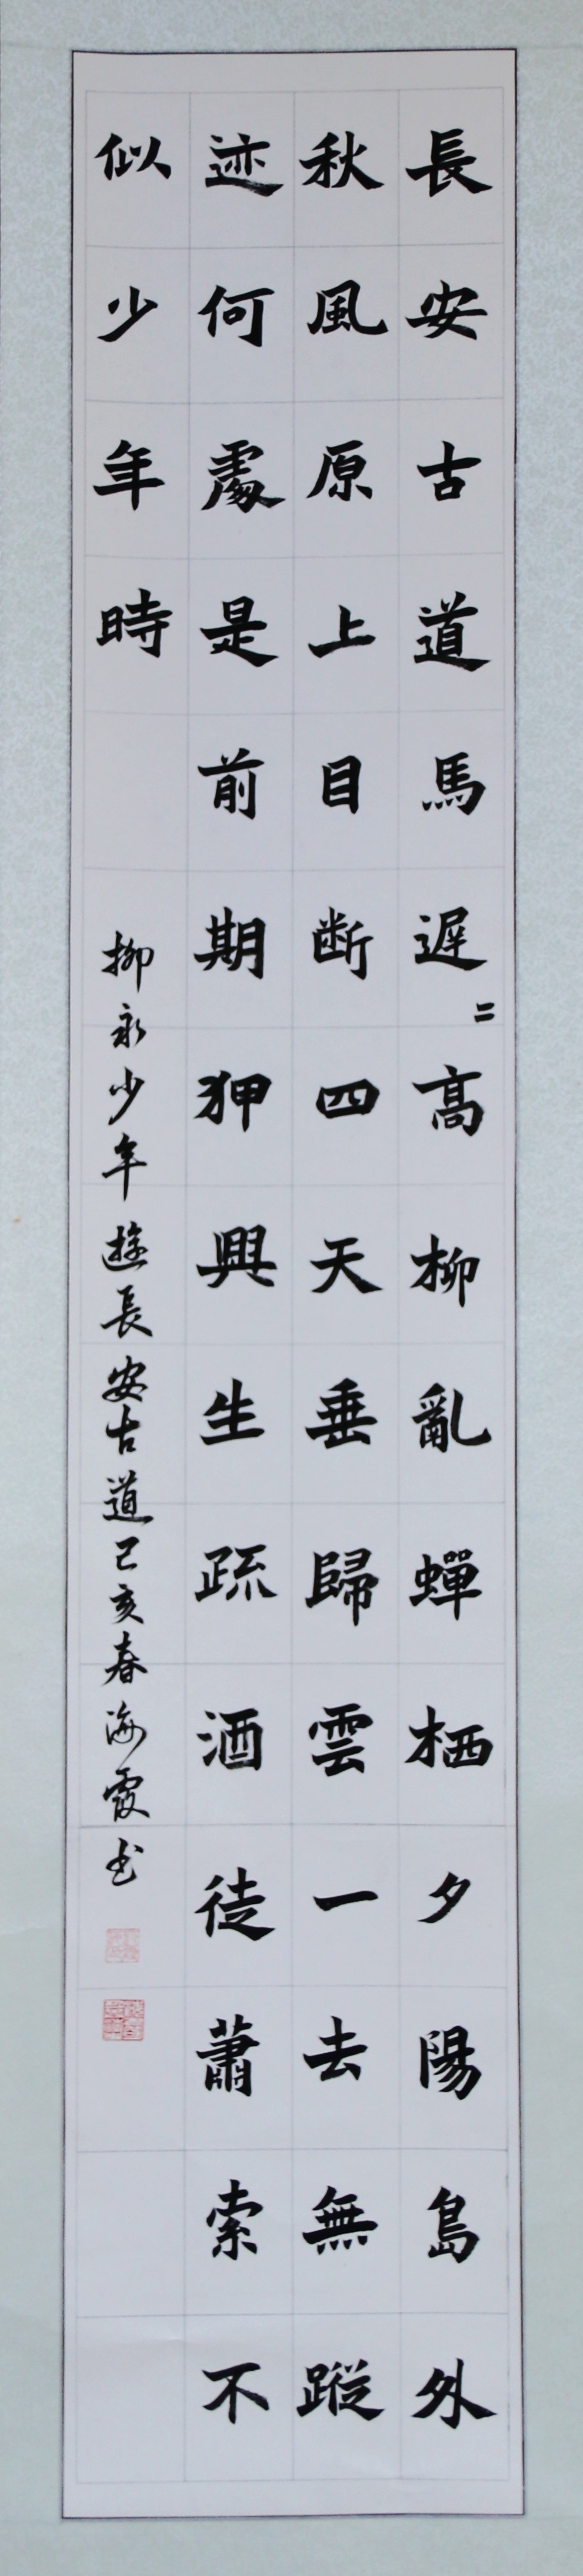 長安古道馬遲二高柳亂蟬栖夕陽島外
秋風原上目断四天垂歸雲一去無蹤
迹何處是前期狎興生疏酒徒蕭索不
似少年時
柳永少年遊長安古道己亥春海霞书